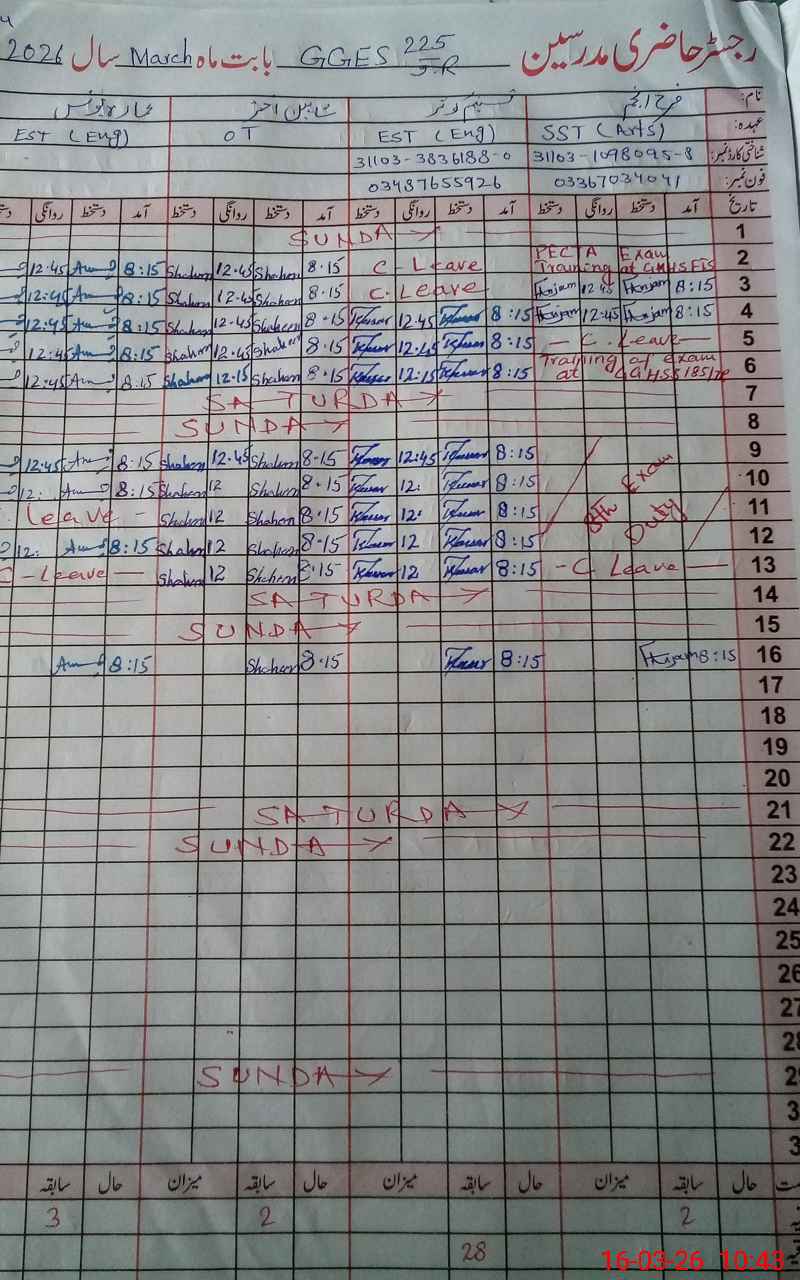 رجسٹر حاضری مدرسین GGES 225/J.R بابت ماہ March سال 2026
نام: فرح انجم
عہدہ: SST (Arts) EST (Eng) OT EST (Eng)
شناختی کارڈ نمبر: 31103-1098095-8 31103-3836188-0
فون نمبر: 03367034041 03487655926
تاریخ آمد دستخط روانگی دستخط آمد دستخط روانگی دستخط آمد دستخط روانگی دستخط آمد دستخط روانگی
1 SUNDAY
2 PECTA Exam Training at C-Leave 8.15 Shaheen 12.45 Shaheen 8:15 12.45
3 8:15 Anjam 12:45 Anjam C.Leave 8.15 Shaheen 12.45 Shaheen 8:15 12:45
4 8:15 Anjam 12:45 Anjam 8:15 Kausar 12:45 Kausar 8.15 Shaheen 12.45 Shaheen 8:15 12:45
5 — C. Leave — 8:15 Kausar 12:45 Kausar 8.15 Shaheen 12.45 Shaheen 8:15 12:45
6 Training of exam at 8:15 Kausar 12:15 Kausar 8.15 Shaheen 12.15 Shaheen 8:15 12:45
7 SATURDAY
8 SUNDAY
9 8:15 Kausar 12:45 Kausar 8.15 Shaheen 12.45 Shaheen 8:15 12:45
10 8th Exam Duty 8:15 Kausar 12: Kausar 8.15 Shaheen 12 Shaheen 8:15 12:
11 8:15 Kausar 12: Kausar 8.15 Shaheen 12 Shaheen Leave -
12 8:15 Kausar 12 Kausar 8.15 Shaheen 12 Shaheen 8:15 12:
13 - C Leave — 8:15 Kausar 12 Kausar 8.15 Shaheen 12 Shaheen C - Leave —
14 SATURDAY
15 SUNDAY
16 8:15 Anjam 8:15 Kausar 8.15 Shaheen 8:15
17
18
19
20
21 SATURDAY
22 SUNDAY
23
24
25
26
27
28
29 SUNDAY
3
3
حال سابقہ میزان حال سابقہ میزان حال سابقہ میزان حال سابقہ
2 2 3
28
16-03-26 10:43